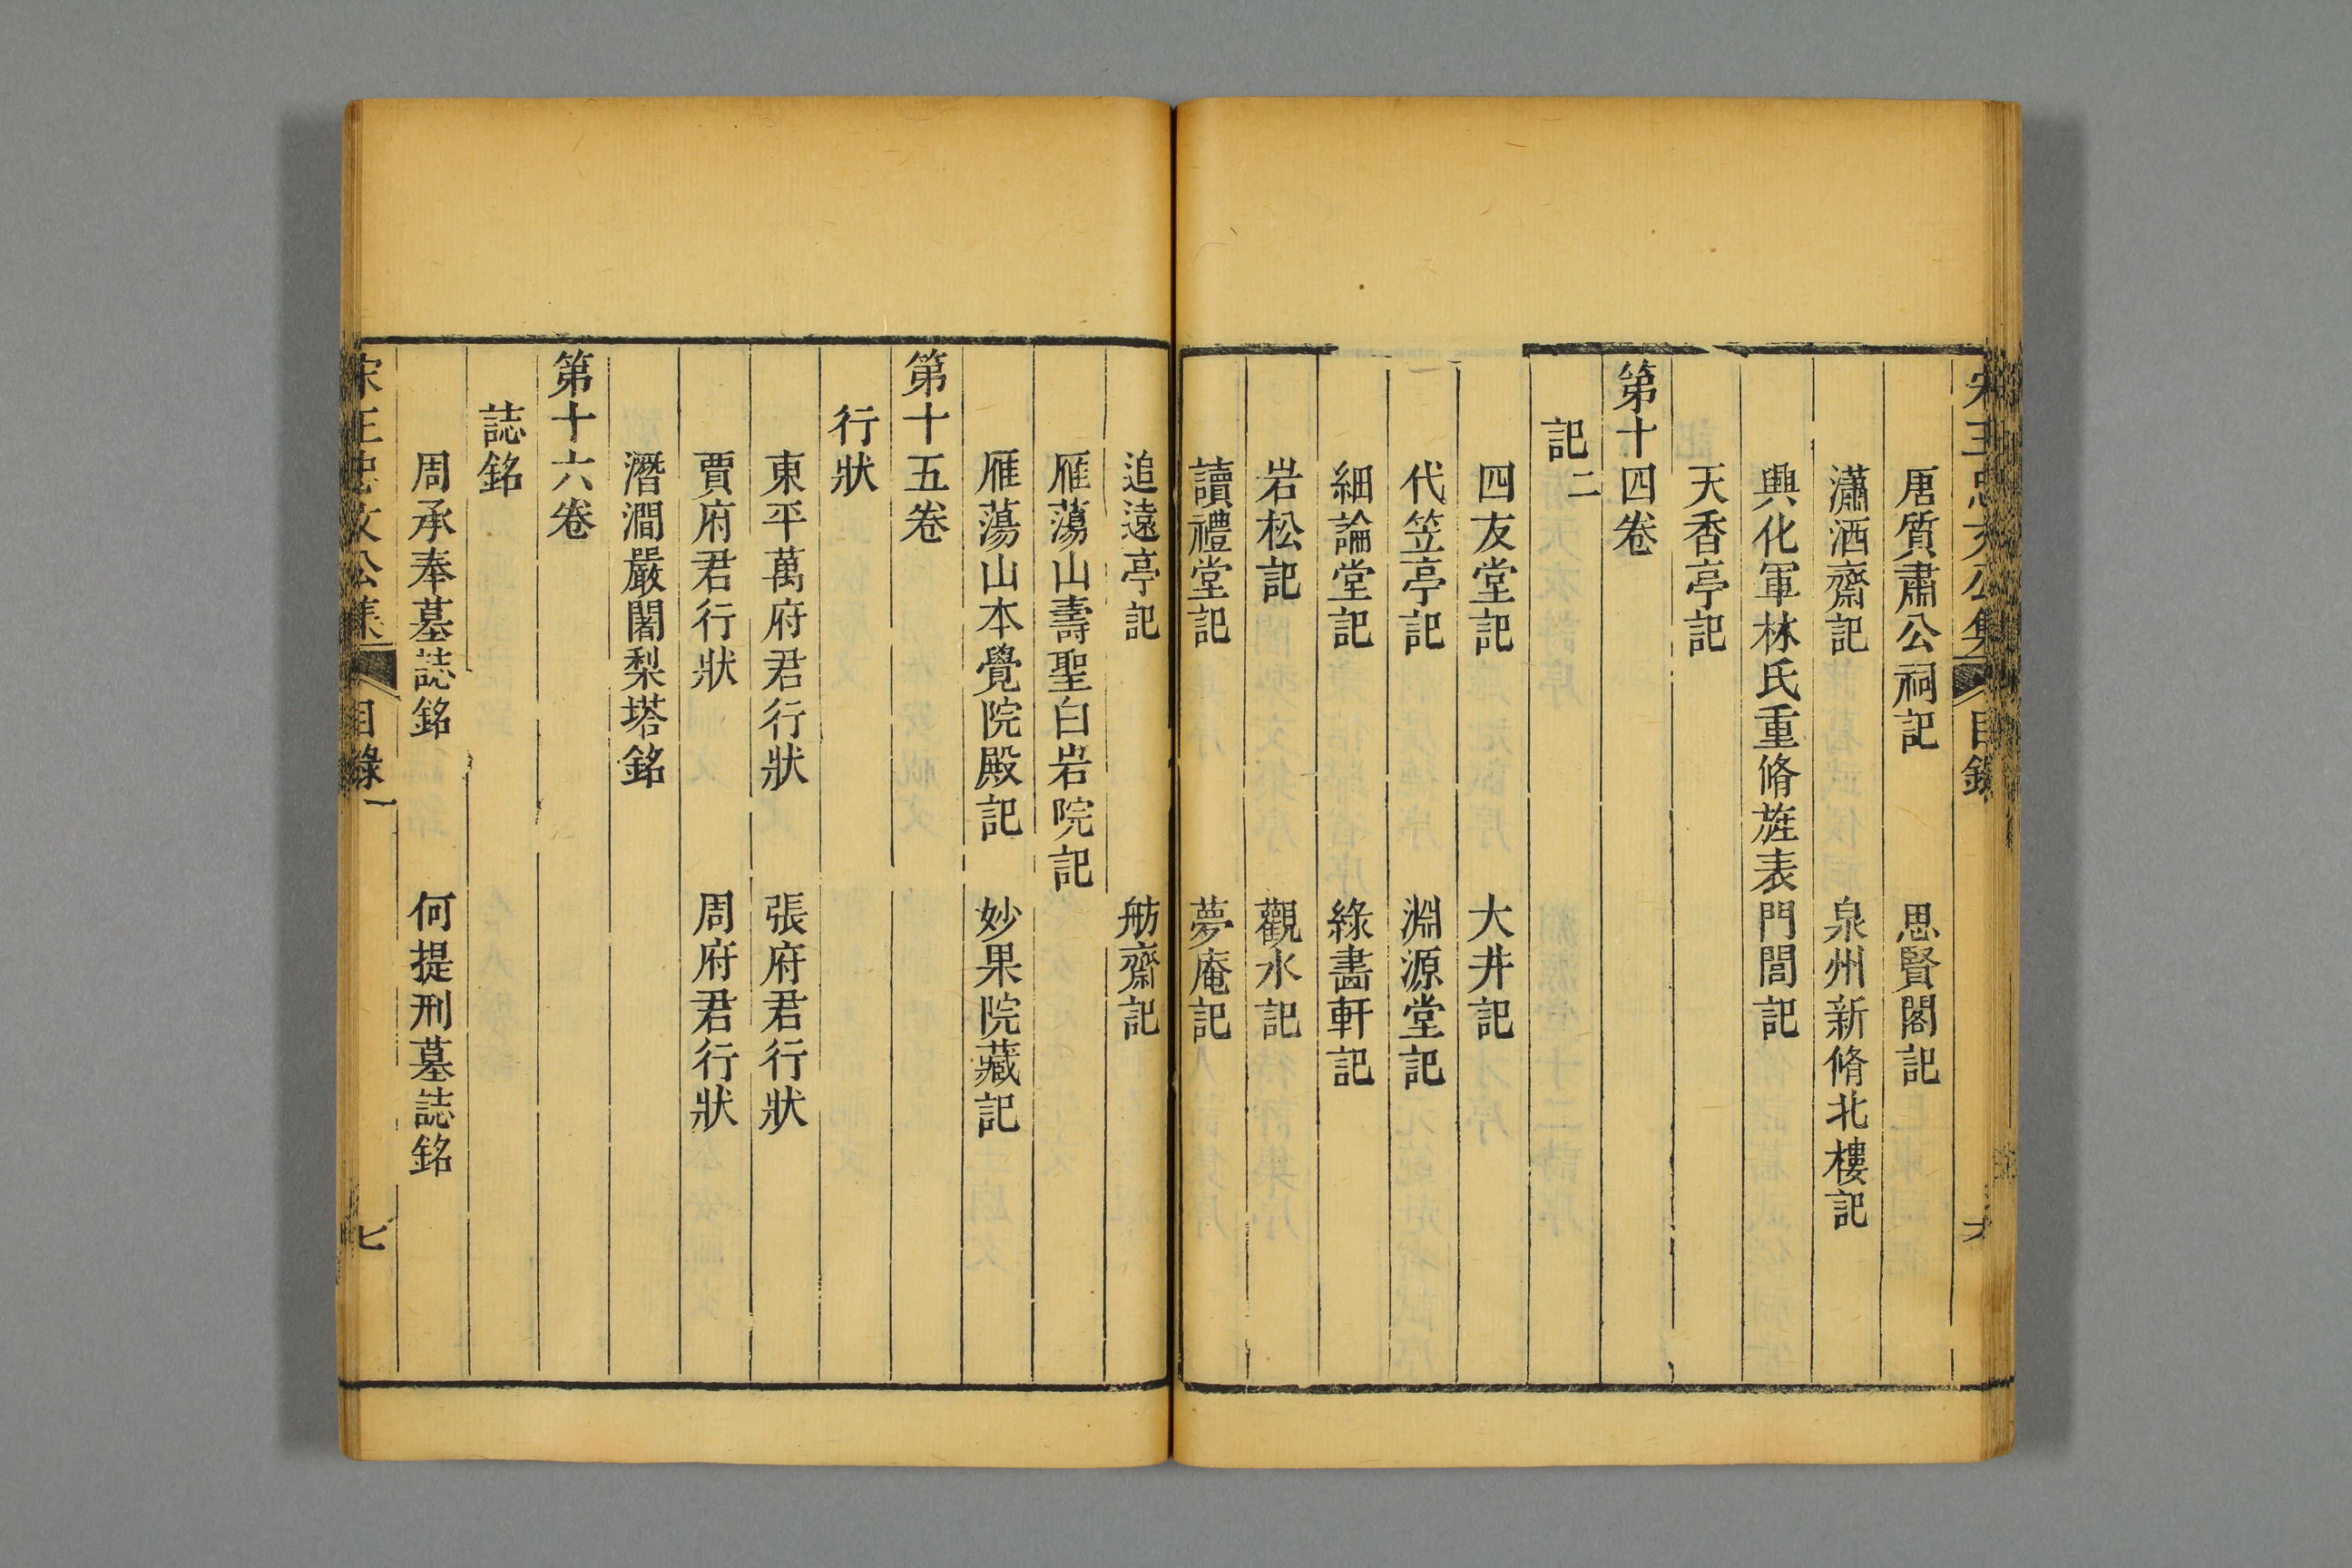 唐質肅公祠記　思賢閣記
瀟洒齋記　泉州新脩北樓記
興化軍林氏重脩旌表門閭記
天香亭記
第十四卷
記二
四友堂記　大井記
代笠亭記　淵源堂記
細論堂記　綠畵軒記
岩松記　觀水記
讀禮堂記　夢庵記
追遠亭記　舫齋記
雁蕩山壽聖白岩院記
雁蕩山本覺院殿記　妙果院藏記
第十五卷
行狀
東平萬府君行狀　張府君行狀
賈府君行狀　周府君行狀
潛澗嚴闍梨塔銘
第十六卷
誌銘
周承奉墓誌銘　何提刑墓誌銘
宋王忠文公集　目錄一　七